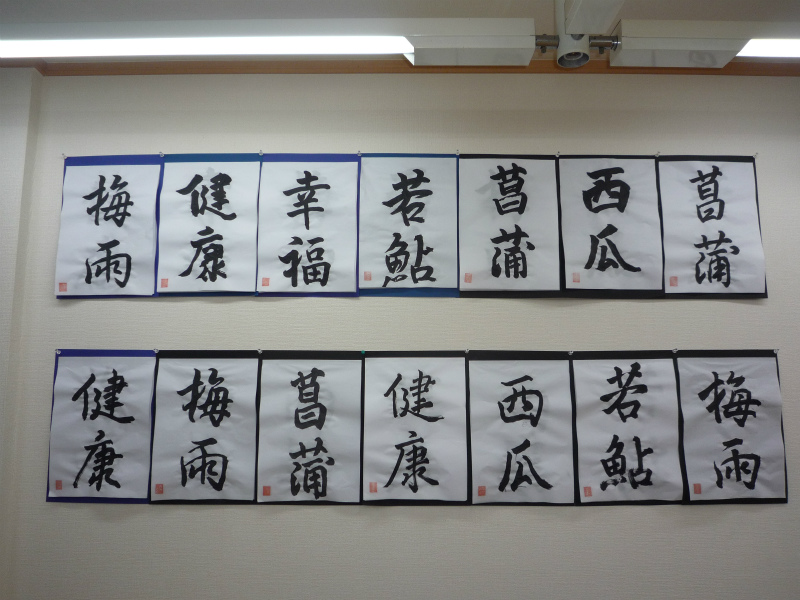 梅雨
健康
幸福
若鮎
菖蒲
西瓜
菖蒲
健康
梅雨
菖蒲
健康
西瓜
若鮎
梅雨